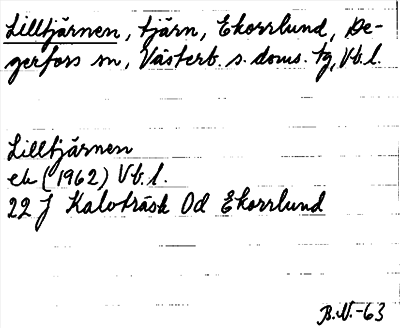 Lilltjärnen, tjärn, Ekorrlund, De-
gerfors sn, Västerb. s. doms. tg, Vb. l.
Lilltjärnen
ek (1962) Vb. l.
22 J Kalvträsk 0d Ekorrlund
B.N.-63